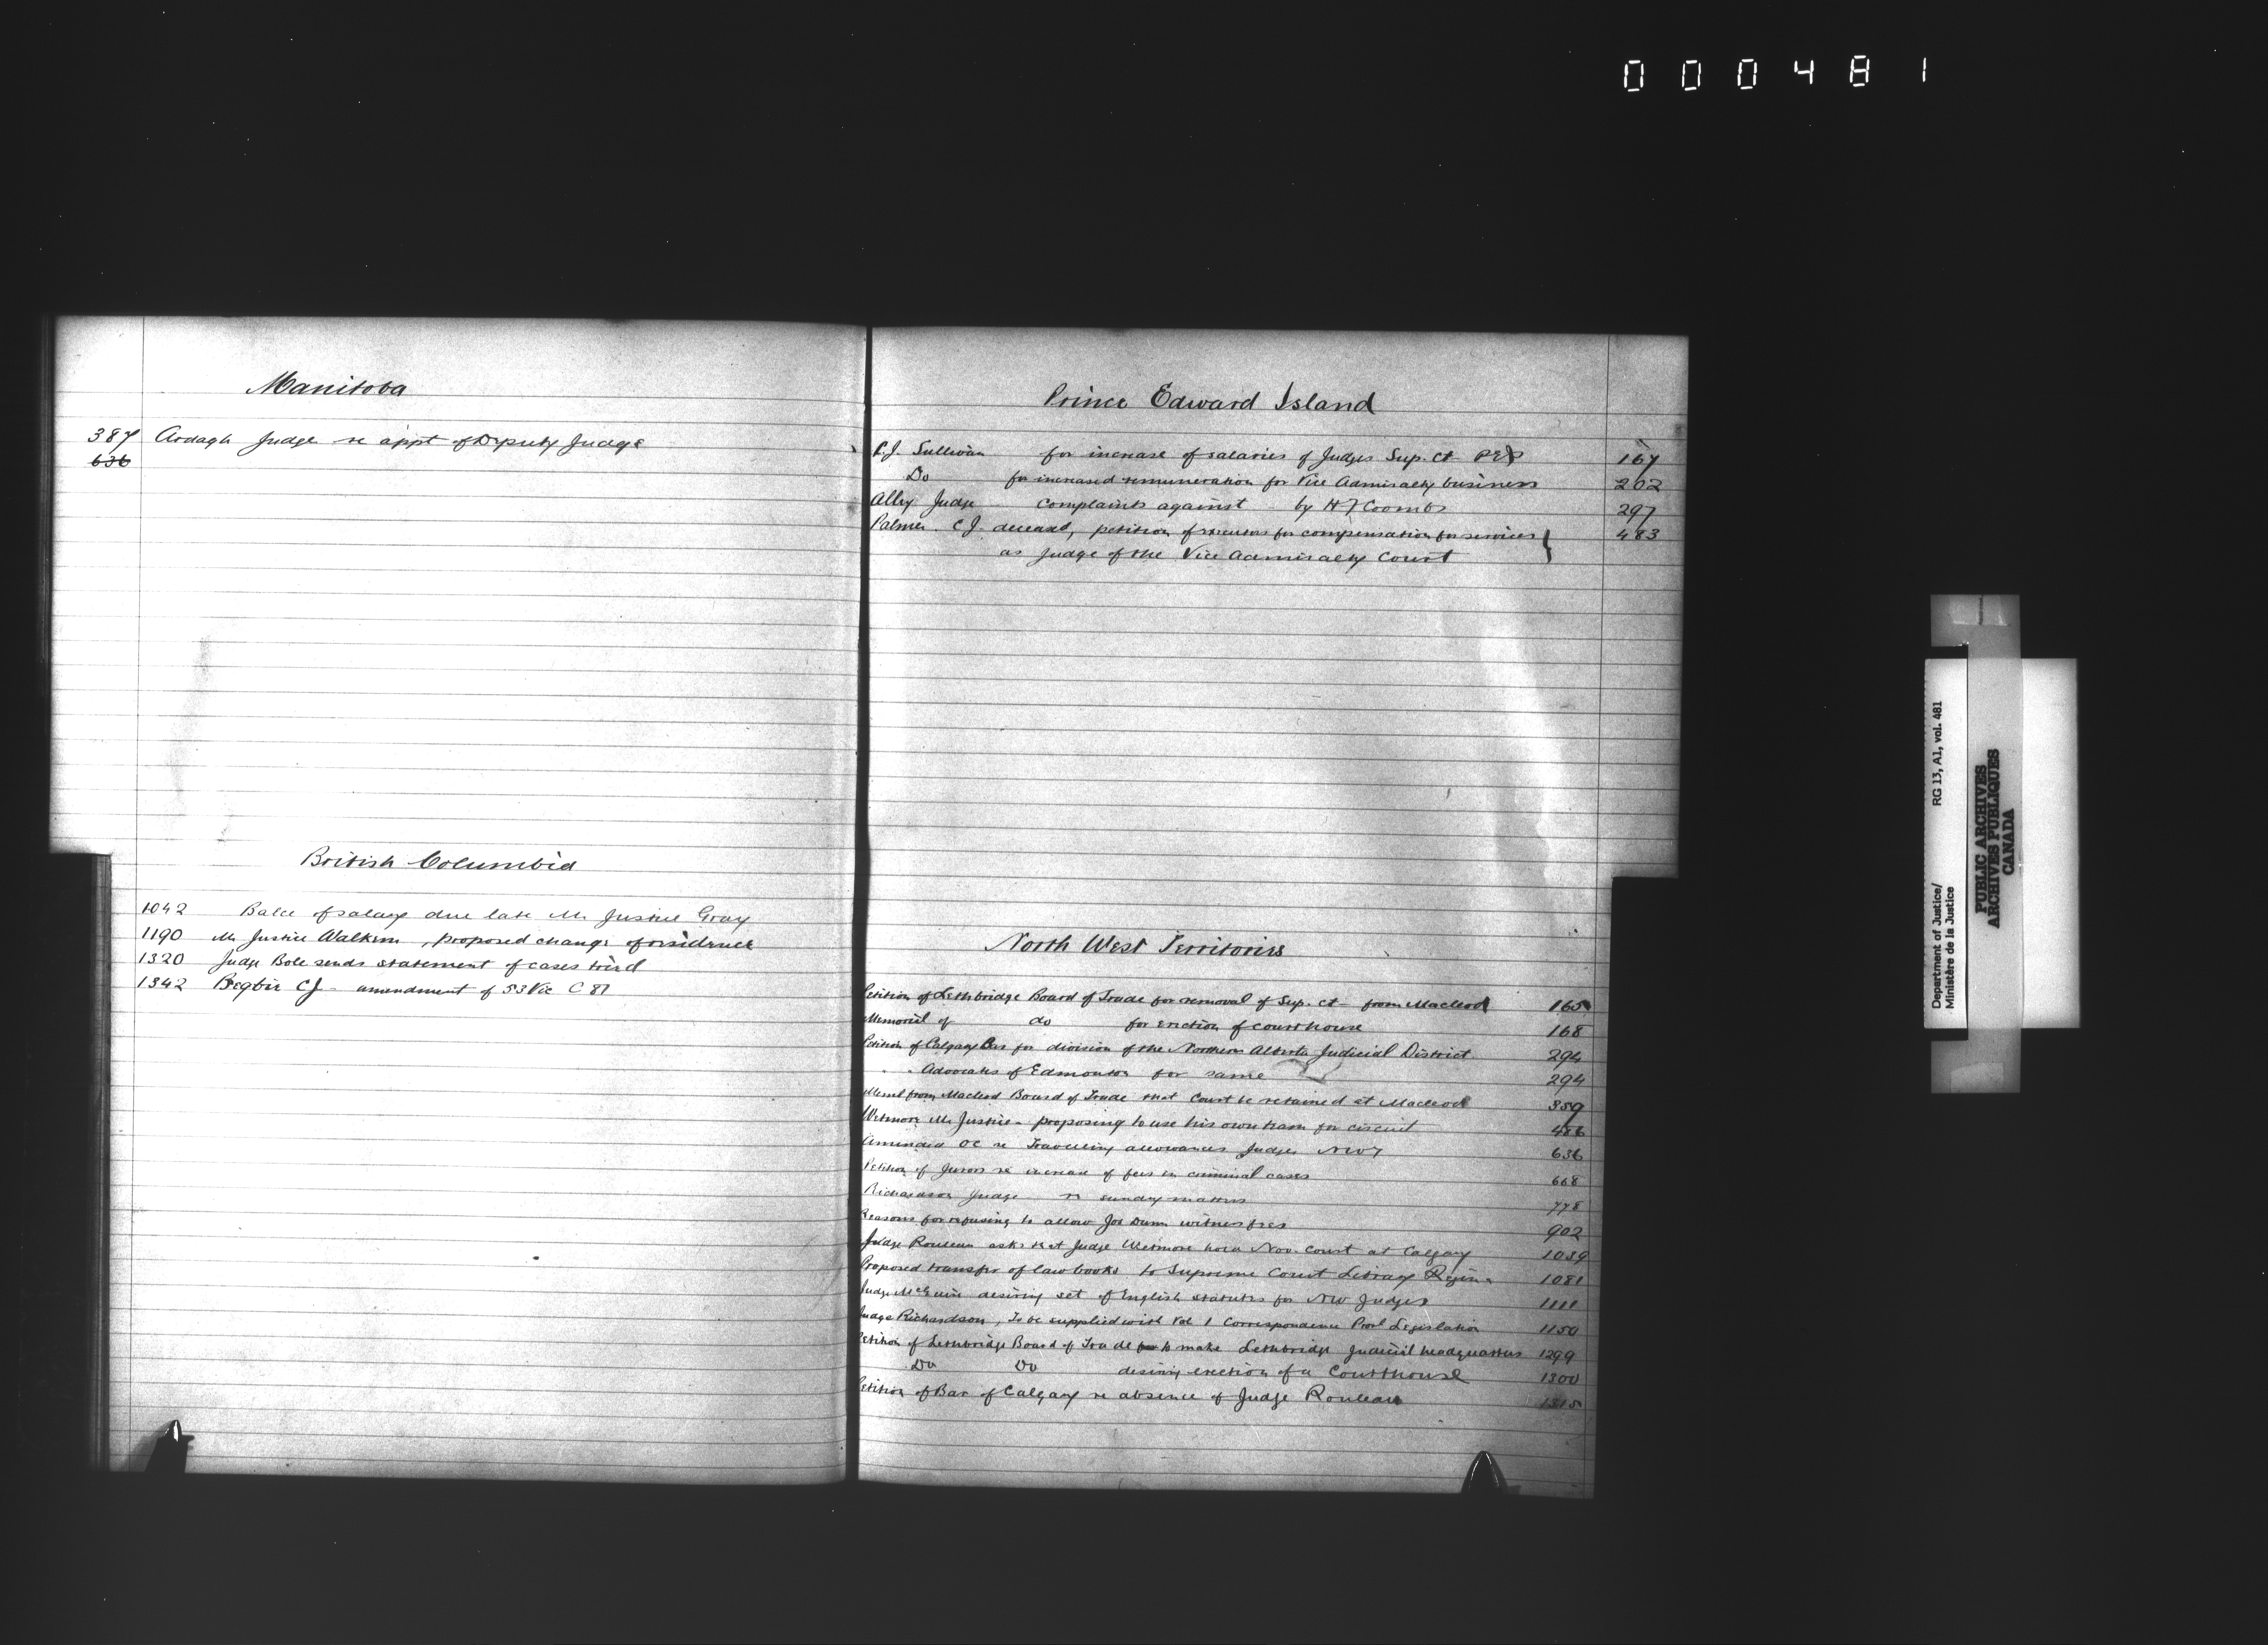 000481
Manitoba
387 Ardagh Judge re appt of Deputy Judge
636
British Columbia
1042 Balce of salary due late Mr Justice Gray
1190 Mr Justice Walkem, proposed change of residence
1320 Judge Bole sends statement of cases tried
1342 Begbie CJ - amendment of 53 Vic C 87
Prince Edward Island
C.J. Sullivan for increase of salaries of Judges Sup. Ct PEI 167
Do for increased remuneration for Vice Admiralty business 202
Alley Judge complaints against by H F Coombs 297
Palmer CJ deceased, petition of executors for compensation for services 483
as Judge of the Vice Admiralty Court
North West Territories
Petition of Lethbridge Board of Trade for removal of Sup. Ct from Macleod 165
Memorial of do for erection of courthouse 168
Petition of Calgary Bar for division of the Northern Alberta Judicial District 294
" " Advocates of Edmonton for same 294
Meml from Macleod Board of Trade that Court be retained at Macleod 359
Wetmore Mr Justice - proposing to use his own team for circuit 486
Amended OC re Travelling allowances Judges NWT 636
Petition of Jurors re increase of fees in criminal cases 668
Richardson Judge re sundry matters 778
Reasons for refusing to allow Jos Dunn witness fees 902
Judge Rouleau asks that Judge Wetmore hold Nov. Court at Calgary 1039
Proposed transfer of law books to Supreme Court Library Regina 1081
Judge McGuire desiring set of English statutes for NW Judges 1111
Judge Richardson, To be supplied with Vol 1 Correspondence Provl Legislation 1150
Petition of Lethbridge Board of Trade to make Lethbridge Judicial headquarters 1299
Do Do desiring erection of a Courthouse 1300
Petition of Bar of Calgary re absence of Judge Rouleau 1315
Department of Justice/ RG 13, A1, vol. 481
Ministère de la Justice
PUBLIC ARCHIVES
ARCHIVES PUBLIQUES
CANADA